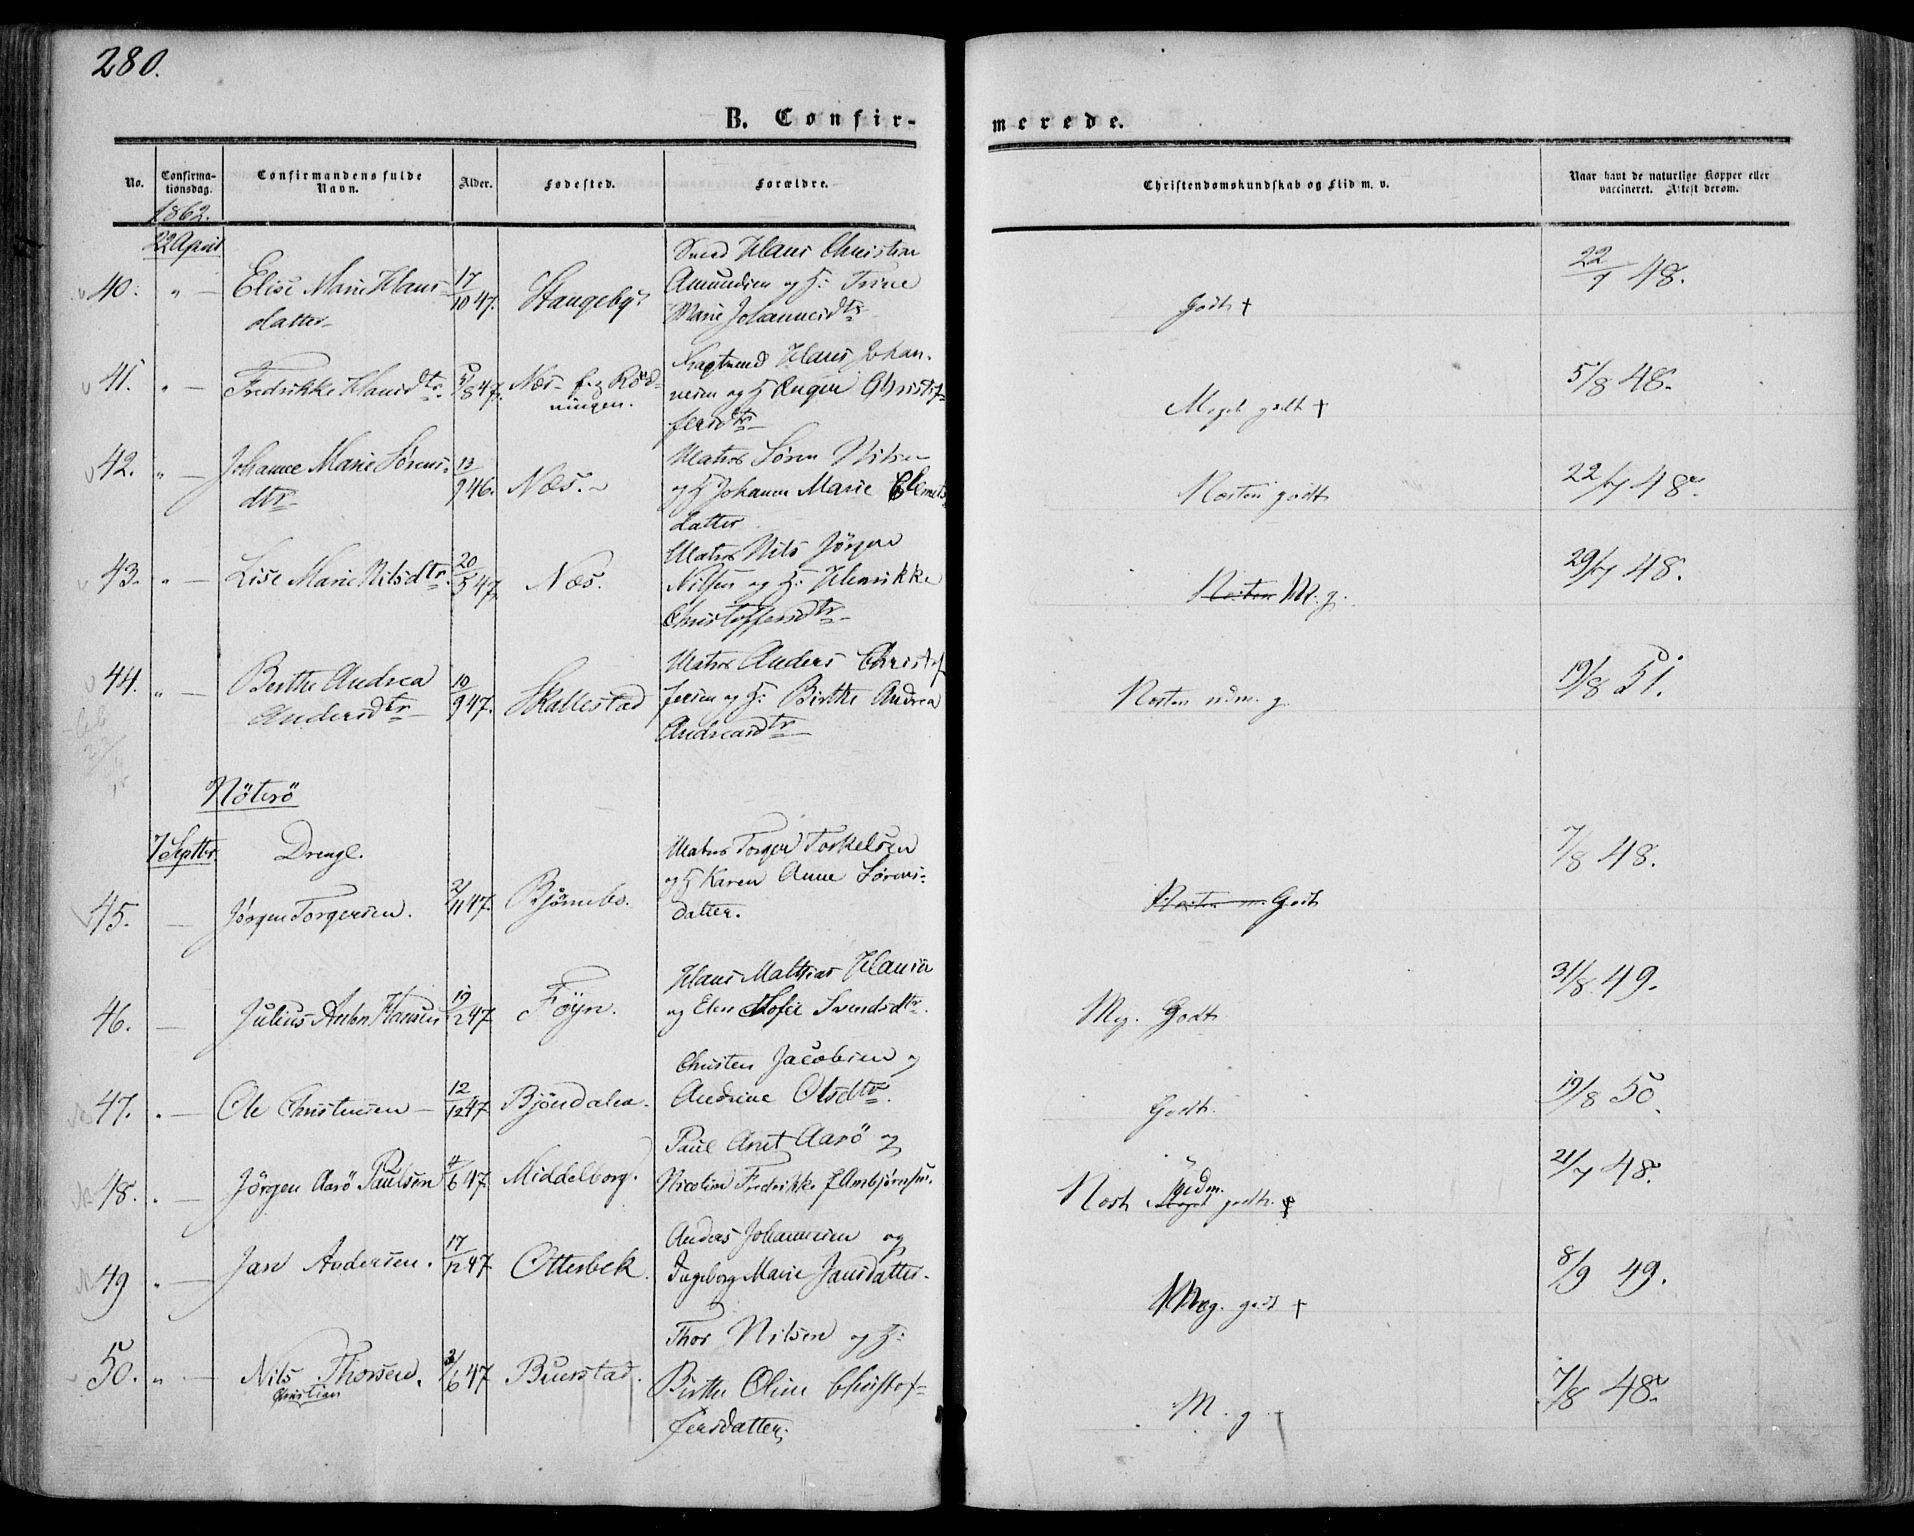 280.
B. Confirmerede.
No.
Confirmationsdag.
Confirmandens fulde Navn.
Alder.
Fødested.
Forældre.
Christendomskundskab og Flid m. v.
Naar havt de naturlige Kopper eller vaccineret. Attest derom.
1862.
22 April
40. " — Elise Marie Hans- 17/10 47. Stangeby. Smed Hans Christian
datter Amundsen og H: Trine
Marie Johannesdtr
Godt +
22/7 48.
41. " — Fredrikke Hansdtr. 5/8 47. Næs f. Hans Johan-
ningen. nesen og H Inger Christof-
fersdtr
Meget godt +
5/8 48.
42. " — Johanne Marie Sørens- 13/9 46. Næs. Matros Søren Nilsen
dtr og H Johanne Marie
datter
Næsten godt
22/7 48.
43. " — Lise Marie Nilsdtr. 20/5 47. Næs. Matros Nils Jörgen
Nilsen og H: Henrikke
Christoffersdtr
Næsten M. g.
29/7 48.
44. " — Berthe Andrea 10/9 47. Skallestad Matros Anders Christof-
Andersdtr fersen og H: Birthe Andrea
Andreasdtr
Næsten udm. g.
19/8 51.
Nöterö
7 Septbr Drenge.
45. — Jörgen Torgersen. 2/11 47. Björnebo. Matros Torger Torkelsen
og H Karen Anne Sörens-
datter.
Godt
7/8 48.
46. — Julius Anton Hansen 19/12 47 Föyn. Hans Mathias Hansen
og Elen Sofie Svendsdtr.
Mg. Godt
31/8 49.
47. " — Ole Christensen — 12/12 47 Bjöndalen. Christen Jacobsen og
Andrine Olsdtr.
Godt.
19/8 50.
48. " — Jörgen Aarö Paulsen 4/6 47 Middelborg. Paul Arnt Aarö og
Nicoline Fredrikke f Ambjörnsen.
Næst udm. godt. +
21/7 48.
49 " — Jan Andersen. 17/12 47 Otterbek. Anders Johannesen og
Ingeborg Marie Jansdatter.
Meg. godt +
8/9 49.
50. " — Nils Thorsen. 3/6 47 Buerstad. Thor Nilsen og H:
Christian Birthe Oline Christof-
fersdatter.
M. g. +
7/8 48.